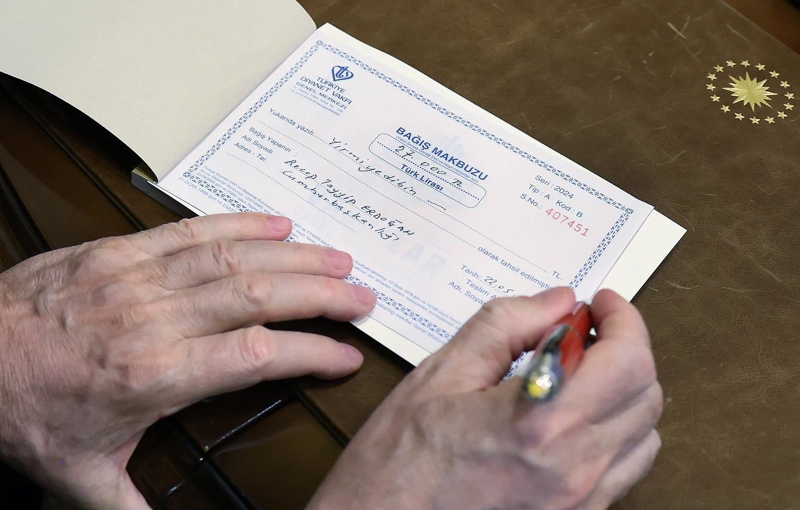 TÜRKİYE
DİYANET VAKFI
GENEL MERKEZİ
BAĞIŞ MAKBUZU
27.000 TL
Türk Lirası
Seri : 2024
Tip : A Kod : B
S.No.: 407451
Yukarıda yazılı Yirmiyedibin
olarak tahsil edilmiştir. TL.
Bağış Yapanın
Adı Soyadı Recep Tayyip ERDOĞAN
Adres - Tel Cumhurbaşkanlığı
Tarih: 22.05
Teslim
Adı, Soyadı